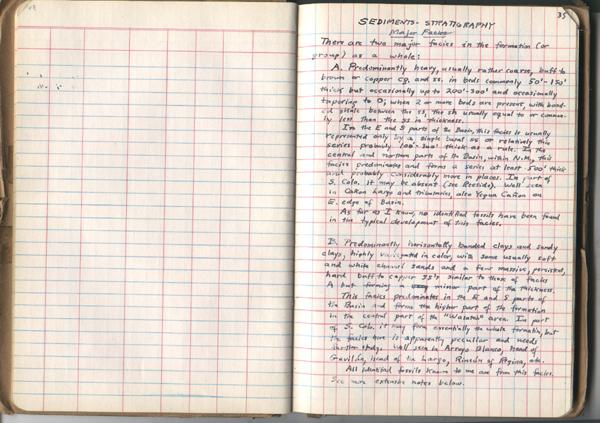 35
SEDIMENTS - STRATIGRAPHY
Major Facies
There are two major facies in the formation (or
group) as a whole:
A. Predominantly heavy, usually rather coarse, buff to
brown or copper cg. and ss. in beds commonly 50'-150'
thick but occasionally up to 200'-300' and occasionally
tapering to 0; when 2 or more beds are present, with band-
ed shale between the ss, the sh usually equal to or
less than the ss in thickness.
In the E and S parts of the Basin, this facies is usually
represented only by a single basal ss or relatively thin
series probably 100'-200' thick as a rule. In the
central and northern parts of the Basin, within N.M., this
facies predominates and forms a series at least 500' thick
and probably considerably more in places. In part of
S. Colo. it may be absent (see Reeside). Well seen
in Cañon Largo and tributaries, also Yegua Cañon on
E. edge of Basin.
As far as I know, no identified fossils have been found
in the typical development of this facies.
B. Predominantly horizontally banded clays and sandy
clays, highly variegated in color, with some usually soft
and white channel sands and a few massive, persistent,
hard buff to copper ss's similar to those of facies
A but forming a minor part of the thickness.
This facies predominates in the E and S parts of
the Basin and forms the higher part of the formation
in the central part of the "Wasatch" area. In part
of S. Colo. it may form essentially the whole formation, but
the facies here is apparently peculiar and needs
further study. Well seen in Arroyo Blanco, head of
Gavilan, head of the Largo, Rincon of Regina, etc.
All identified fossils known to me are from this facies.
See more extensive notes below.